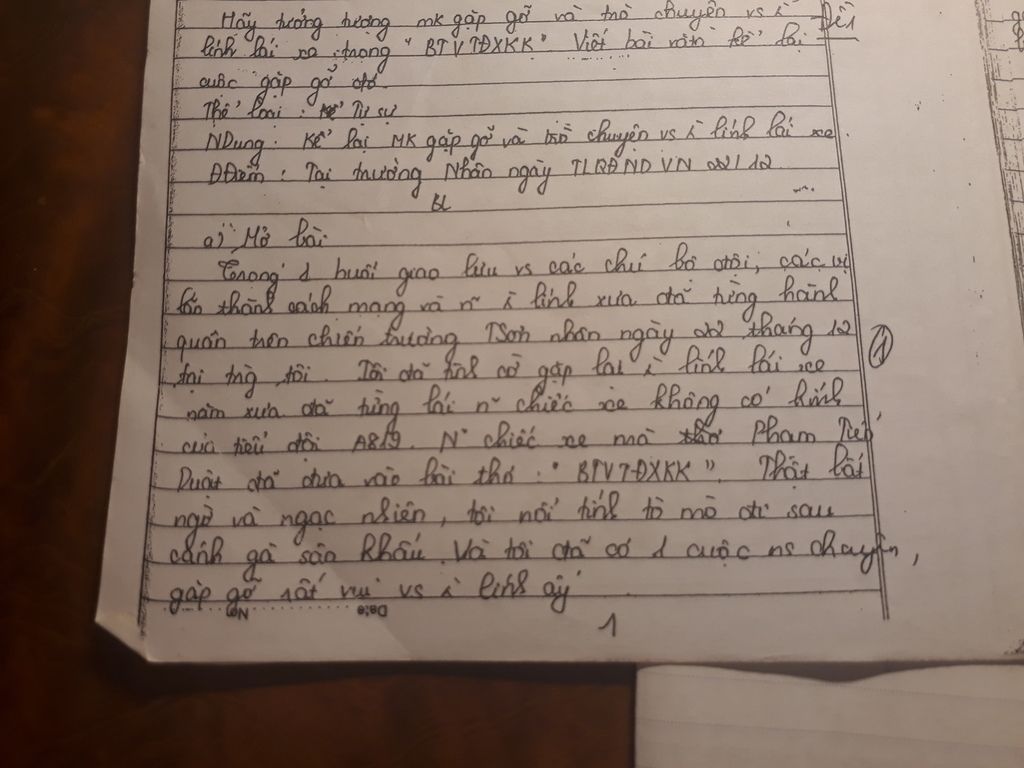 Hãy tưởng tượng mk gặp gỡ và trò chuyện vs ì
Đề1
lính lái xe trong "BTVTĐXKK" Viết bài văn kể lại
cuộc gặp gỡ đó
Thể loại: Tự sự
NDung: Kể lại MK gặp gỡ và trò chuyện vs ì lính lái xe.
ĐĐiểm: Tại trường Nhân ngày TLQĐND VN 22/12
BL
a) Mở bài
Trong 1 buổi giao lưu vs các chú bộ đội, các vị
lão thành cách mạng và n~ ì lính xưa đã từng hành
quân trên chiến trường TSơn nhân ngày 22 tháng 12
tại trg tôi. Tôi đã tình cờ gặp lại ì lính lái xe
năm xưa đã từng lái n~ chiếc xe không có kính
của tiểu đội N~ chiếc xe mà Phạm Tiến
Duật đã đưa vào bài thơ: "BTVTĐXKK". Thật bất
ngờ và ngạc nhiên, tôi nổi tính tò mò đi sau
cánh gà sân khấu. Và tôi đã có 1 cuộc ns chuyện,
gặp gỡ rất vui vs ì lính ấy
①
No
Date
1